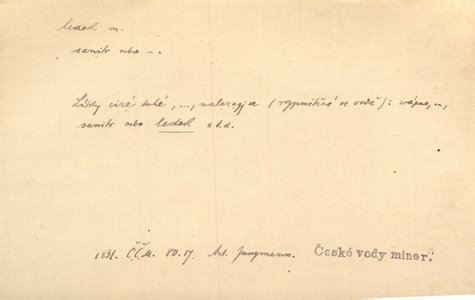 ledek m.
sanitr nebo –.
Látky cizé tuhé, ..., nalezají se (rozpuštěné ve vodě): vápno, ...,
sanitr nebo ledek a t.d.
1831. Č.Č.M. 80.17. Ant. Jungmann. České vody miner.